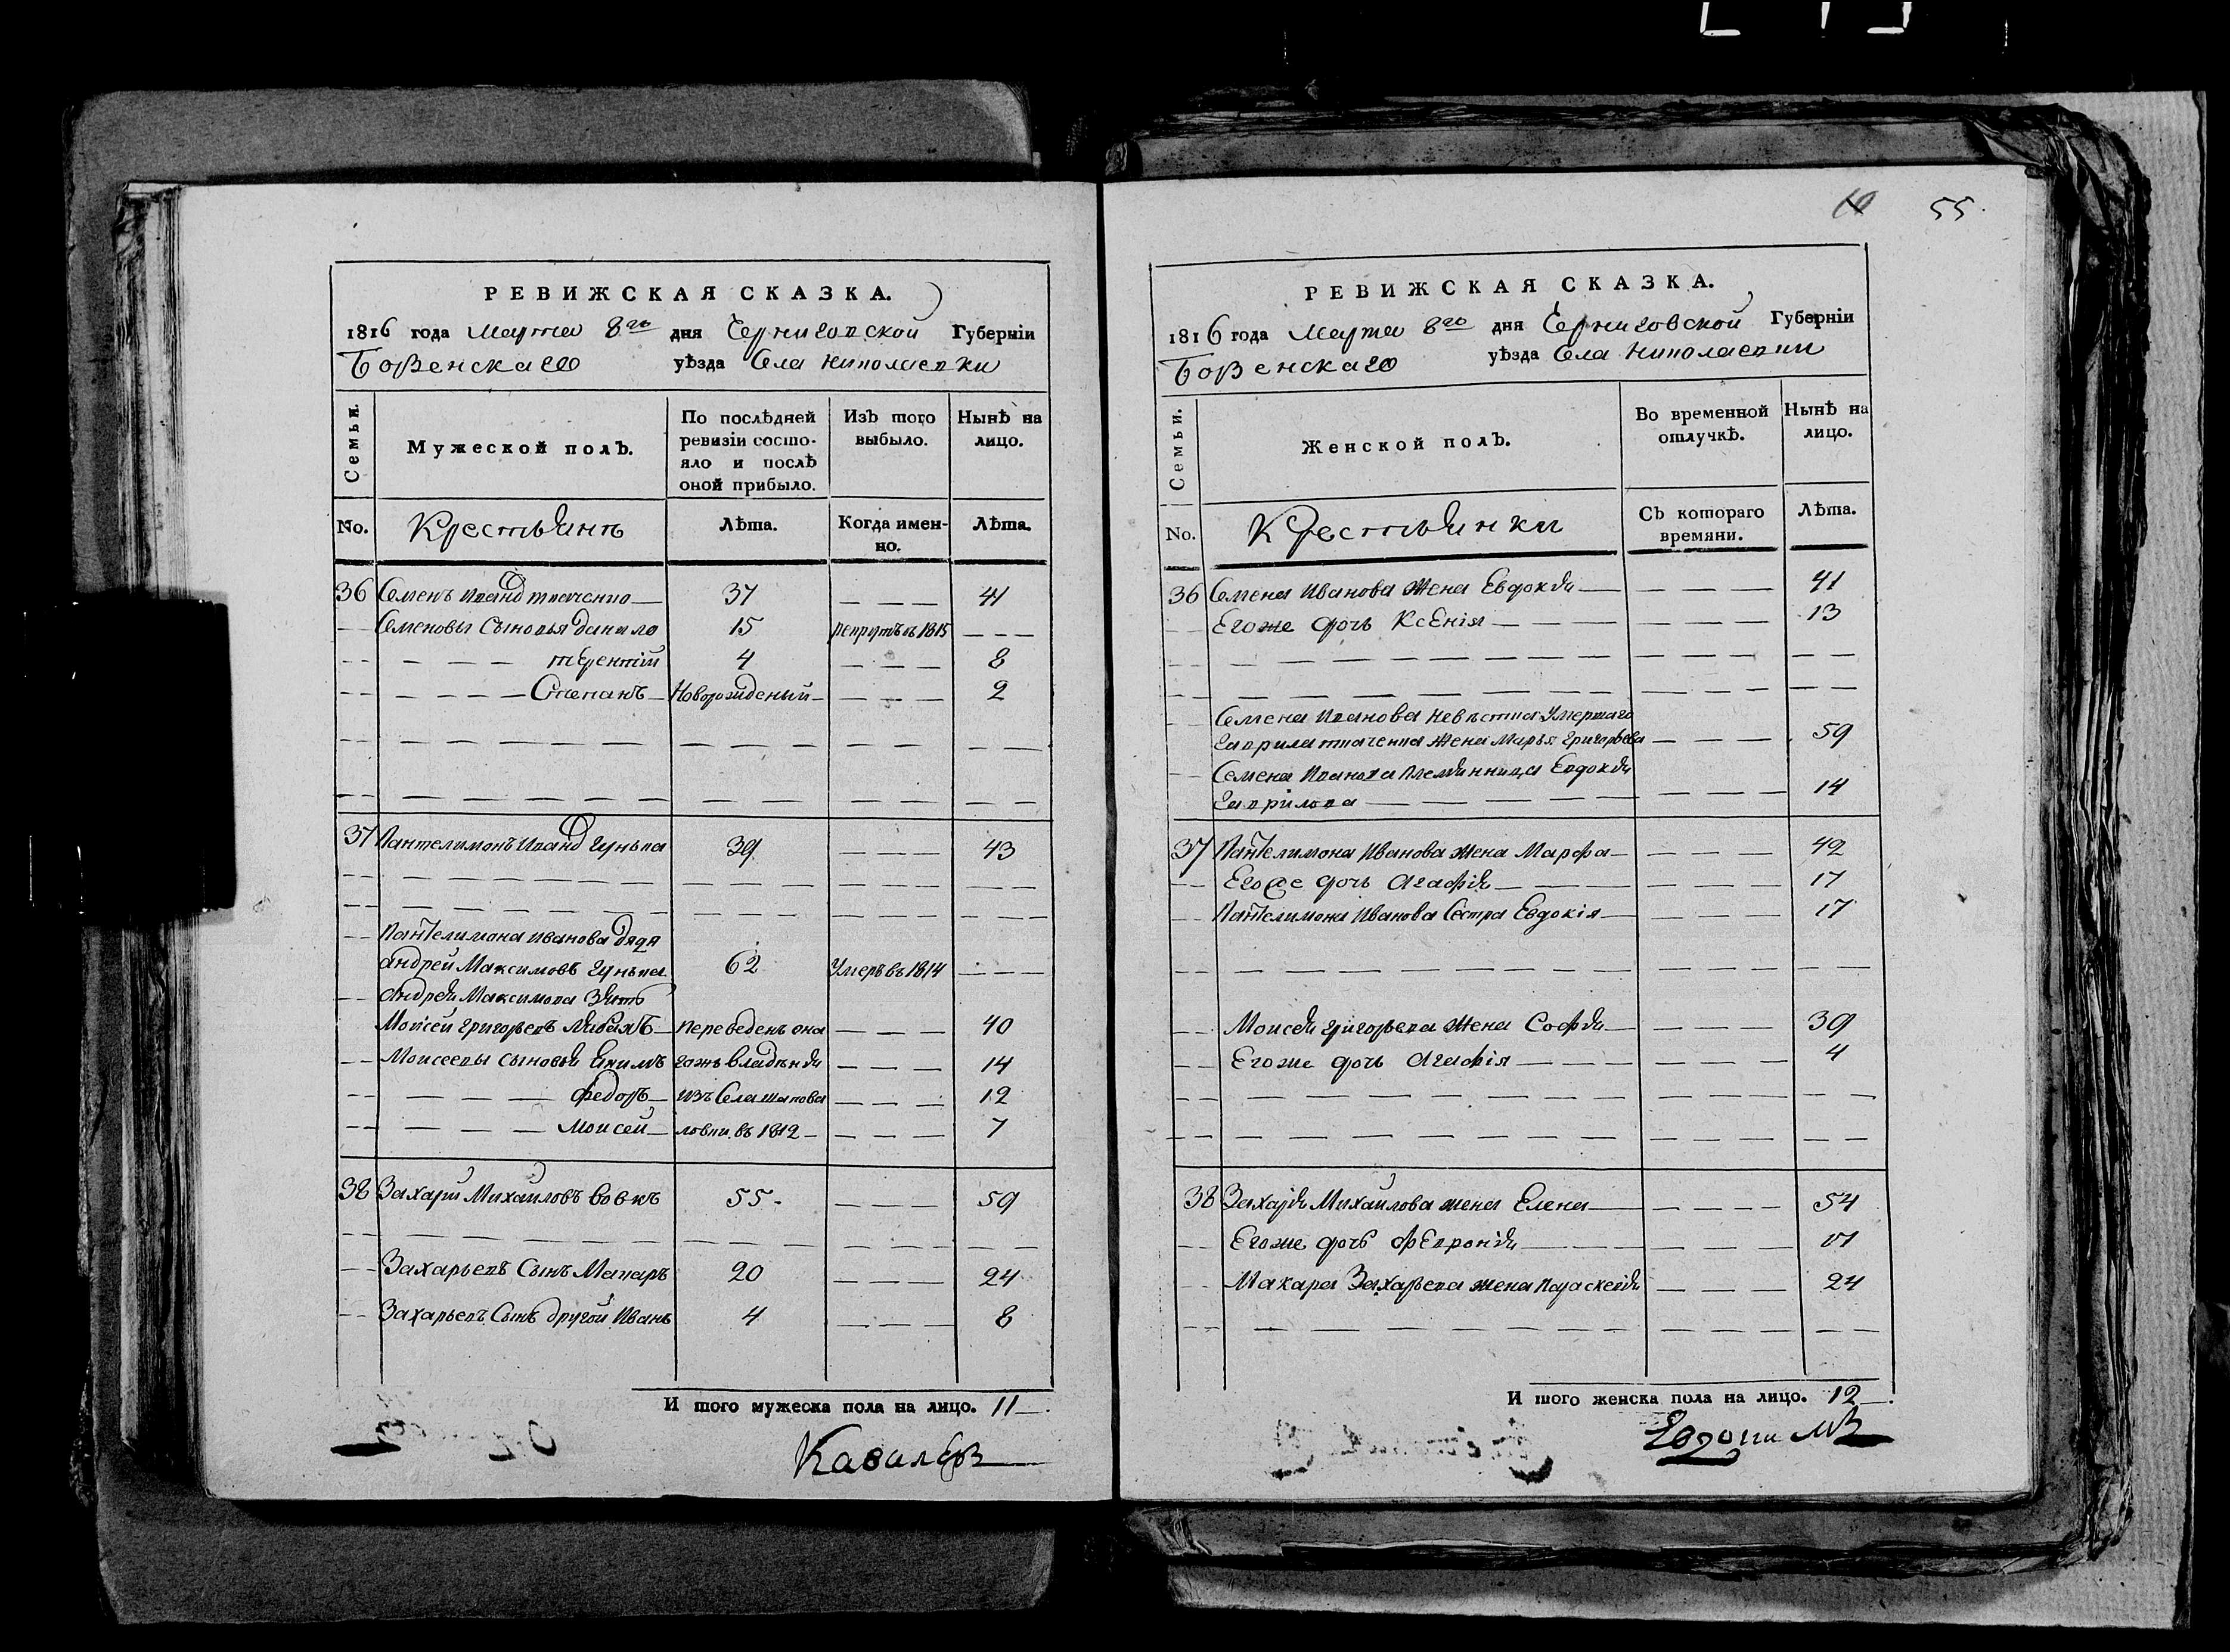 55.
РЕВИЖСКАЯ СКАЗКА.
1816 года Марта 8го дня Черниговской Губерніи
Борзенскаго уѣзда Села Николаевки
Семьи.
Мужеской полъ.
По послѣдней ревизіи состояло и послѣ оной прибыло.
Изъ того выбыло.
Нынѣ на лицо.
No.
Крестьянъ
Лѣта.
Когда именно.
Лѣта.
36 Семенъ Иванов Ткаченко 37 — — — 41
Семеновы Сыновья данило 15 рекрутъ въ 1815 — — —
— — — терентій 4 — — — 8
— — — Степанъ Новорожденый — — — 2
37 Пантелимонъ Иванов Гунька 39 — — — 43
Пантелимона Иванова дядя
андрей Максимовъ Гунька 62 Умеръ въ 1814 — — —
Андрея Максимова Зять
Моисей григорьевъ переведенъ она — — — 40
Моисеевы сыновья Екимъ гожъ владѣнія — — — 14
— — — Федоръ изъ Села шапова — — — 12
— — — Моисей ловки въ 1812 — — — 7
38 Захарій Михайловъ вовкъ 55 — — — 59
Захарьевъ Сынъ Макаръ 20 — — — 24
Захарьевъ Сынъ другой Иванъ 4 — — — 8
И того мужеска пола на лицо. 11
РЕВИЖСКАЯ СКАЗКА.
1816 года Марта 8го дня Черниговской Губерніи
Борзенскаго уѣзда Села Николаевки
Семьи.
Женской полъ.
Во временной отлучкѣ.
Нынѣ на лицо.
No.
Крестьянки
Съ котораго времяни.
Лѣта.
36 Семена Иванова жена Евдокия — — — 41
Егоже дочь Ксенія — — — 13
Семена Иванова невѣстка Умершаго
гаврила ткаченка жена Марья григорьева — — — 59
Семена Иванова племянница Евдокия
гаврилова — — — 14
37 Пантелимона Иванова жена Марфа — — — 42
Егоже дочь Агафія — — — 17
Пантелимона Иванова Сестра Евдокія — — — 17
Моисея григорьева жена София — — — 39
Егоже дочь Агафія — — — 4
38 Захарія Михайлова жена Елена — — — 54
Егоже дочь февронія — — —
Макара Захарьева жена параскевія — — — 24
И того женска пола на лицо. 12